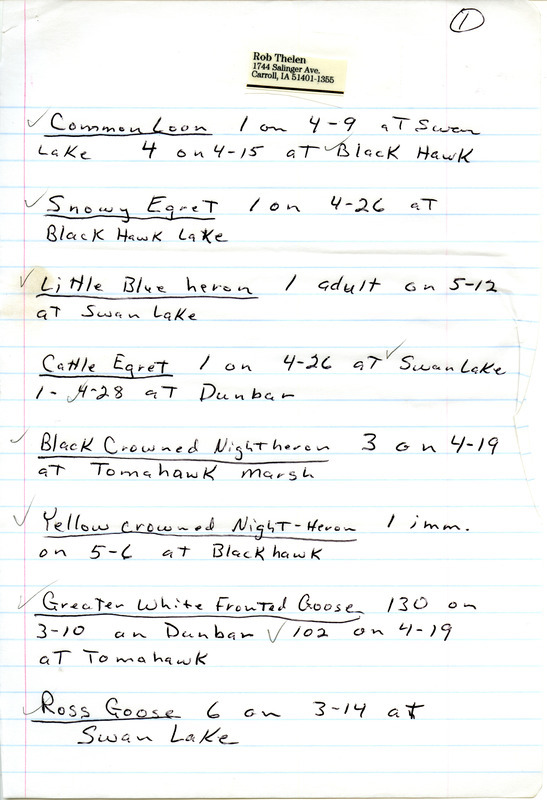 1
Rob Thelen
1744 Salinger Ave.
Carroll, IA 51401-1355
✓Common Loon 1 on 4-9 at Swan
Lake 4 on 4-15 at ✓Black Hawk
✓Snowy Egret 1 on 4-26 at
Black Hawk Lake
✓Little Blue heron 1 adult on 5-12
at Swan Lake
Cattle Egret 1 on 4-26 at ✓Swan Lake
1- 4-28 at Dunbar
✓Black Crowned Nightheron 3 on 4-19
at Tomahawk Marsh
✓Yellow crowned Night-Heron 1 imm.
on 5-6 at Blackhawk
✓Greater White Fronted Goose 130 on
3-10 on Dunbar ✓102 on 4-19
at Tomahawk
✓Ross Goose 6 on 3-14 at
Swan Lake